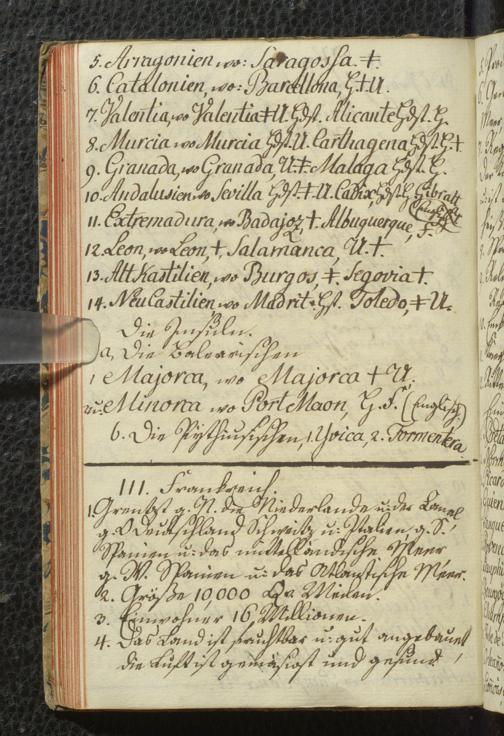 5. Arragonien wo: Saragossa. ‡.
6. Catalonien, wo: Barcellona, H‡U.
7. Valentia, wo Valentia‡U. Hdst. Alicante Hdst. H.
8. Murcia wo Murcia Hdst. U. Carthagena Hdst. H.‡
9. Granada, wo Granada, U.‡. Malaga Hdst. H.
10. Andalusien wo Sevilla Hdst. ‡. U. Cadix, Hdst. H. Gibralt
(Englisch)
11. Extremadura, wo Badajoz, †. Albuquerque, F.
12. Leon, wo Leon, †, Salamanca, U. †.
13. Alt Kastilien, wo Burgos, ‡. Segovia †.
14. Neu Castilien wo Madrit: Hst. Toledo, ‡ U.
Die Insuln.
a, Die Balearischen
1 Majorca, wo Majorca † U,
u: Minorca wo Port Maon, H. F. (Englisch)
b. Die Pythiusischen, 1. Yvica, 2. Formentera
III. Frankreich.
1. Grenzt g. N. die Niederlande u: der Canal
g. O Deutschland Schweitz u: Italien g. S.
Spanien u: das mittelländische Meer
g. W. Spanien u: das Atlantische Meer.
2. Größe 10,000 Qu Meilen.
3. Einwohner 16, Millionen.
4. Das Land ist fruchtbar u: gut angebauet,
die Luft ist gemäsigt und gesund